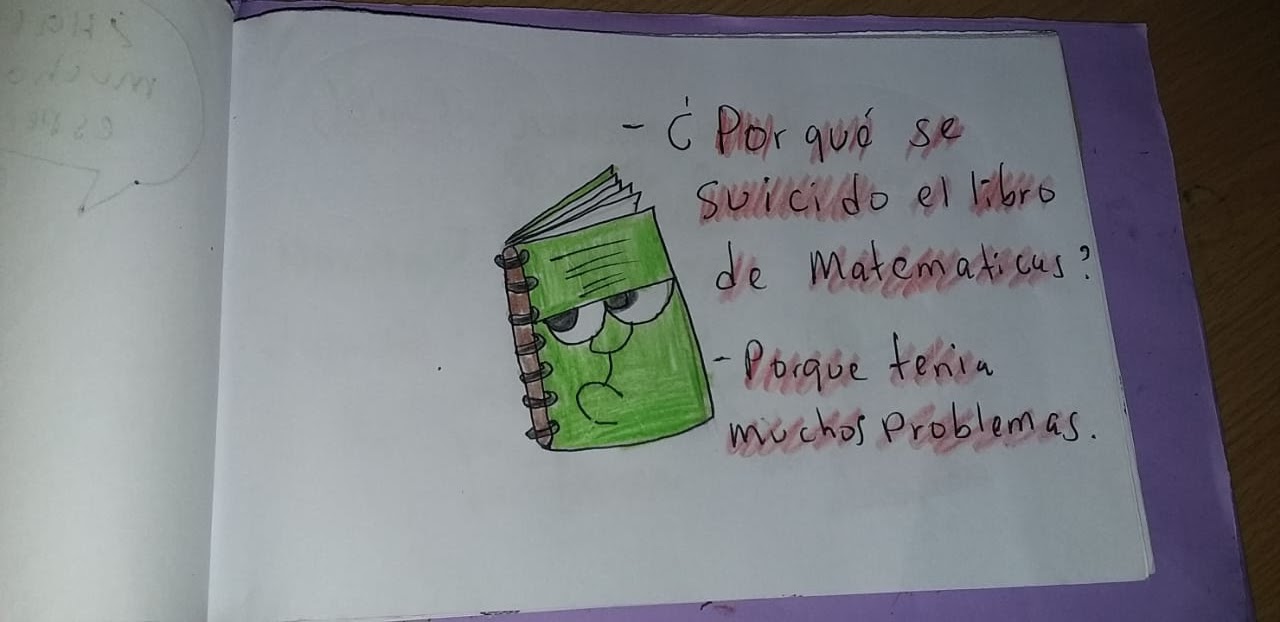 - ¿Por qué se
suicido el libro
de Matematicas?
- Porque tenia
muchos problemas.